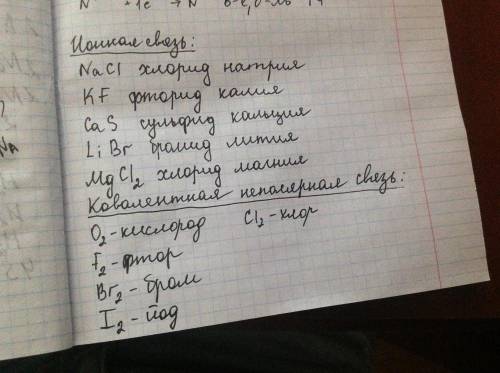 Ионная связь:
NaCl хлорид натрия
KF фторид калия
CaS сульфид кальция
LiBr бромид лития
MgCl2 хлорид магния
Ковалентная неполярная связь:
O2 - кислород Cl2 - хлор
F2 - фтор
Br2 - бром
I2 - йод